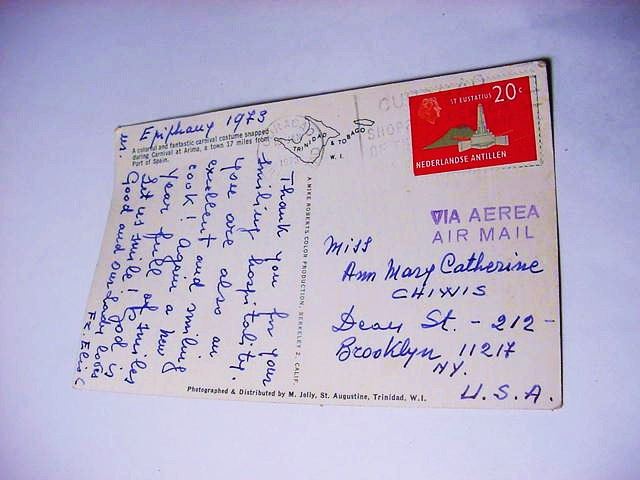 Epiphany 1973
A colorful and fantastic carnival costume snapped
during Carnival at Arima, a town 17 miles from
Port of Spain.
Thank you for your
smiling hospitality.
you are also an
excellent and smiling
cook! Again a new
year full of smiles
Let us smile! God is
Good and our Lady loves
us.
Fr. Elis C
TRINIDAD & TOBAGO
W. I.
A MIKE ROBERTS COLOR PRODUCTION, BERKELEY 2, CALIF.
ST EUSTATIUS 20c
NEDERLANDSE ANTILLEN
VIA AEREA
AIR MAIL
Miss
Ann Mary Catherine
CHIWIS
Dean St. - 212 -
Brooklyn 11217
NY.
U.S.A.
Photographed & Distributed by M. Jolly, St. Augustine, Trinidad, W.I.